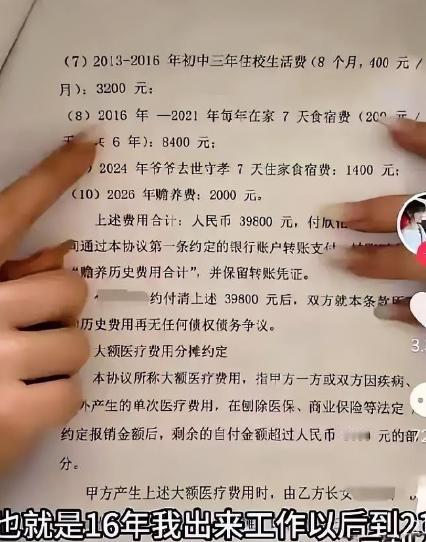 (7) 2013-2016 年初中三年住校生活费(8 个月,400 元/
月): 3200 元;
(8) 2016 年 —2021 年每年在家 7 天食宿费(200 元/
共 6 年): 8400 元;
2024 年爷爷去世守孝 7 天住家食宿费: 1400 元;
(10) 2026 年赡养费: 2000 元。
上述费用合计: 人民币 39800 元, 付款
通过本协议第一条约定的银行账户转账支付
“赡养历史费用合计”, 并保留转账凭证。
约付清上述 39800 元后, 双方就本条款
历史费用再无任何债权债务争议。
大额医疗费用分摊约定
本协议所称大额医疗费用, 指甲方一方或双方因疾病、
外产生的单次医疗费用, 在刨除医保、商业保险等法定
约定报销金额后, 剩余的自付金额超过人民币 元的部
分。
甲方产生上述大额医疗费用时, 由乙方长女
3.
72
也就是16年我出来工作以后到21